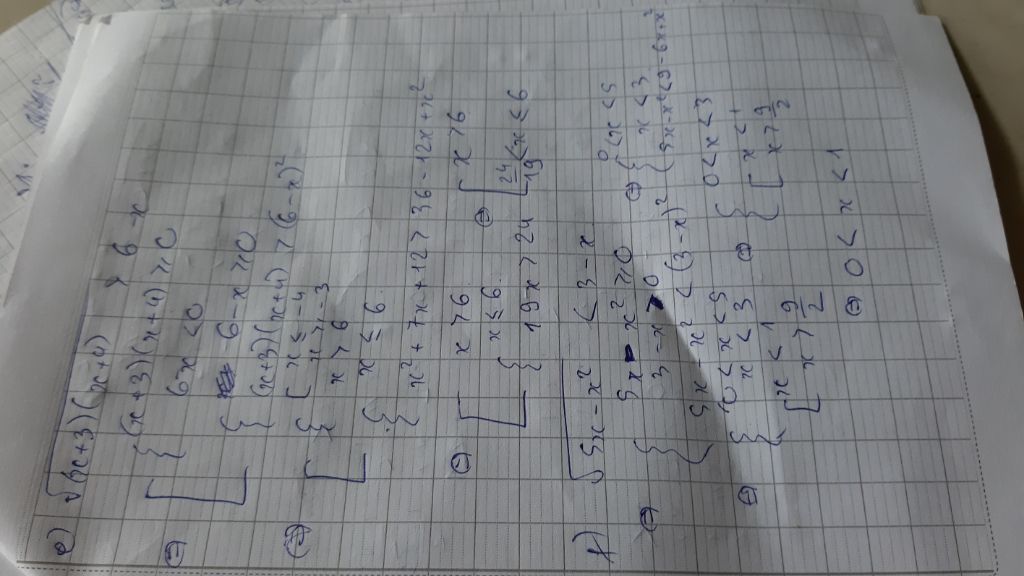 e) √(x+3)(x+4) > 6-x
⇔ [ { (x+3)(x+4) ≥ 0
6-x < 0
{ 6-x ≥ 0
(x+3)(x+4) > (6-x)²
⇔ [ { [ x ≤ -4
x ≥ -3
x > 6
{ x ≤ 6
x² + 7x + 12 > 36 - 12x + x²
⇔ [ x > 6
{ x ≤ 6
19x > 24
⇔ [ x > 6
24/19 < x ≤ 6
f) √5x - x² < 3 - x
⇔ { 5x - x² ≥ 0
3 - x > 0
5x - x² < (3-x)²
⇔ { 0 < x < 5
x < 3
5x - x² < 9 - 6x + x²
⇔ { 0 < x < 5
x < 3
[ x < 1
x > 9/2
⇔ { 0 < x < 3
[ x < 1
x > 9/2
⇔ 0 < x < 1